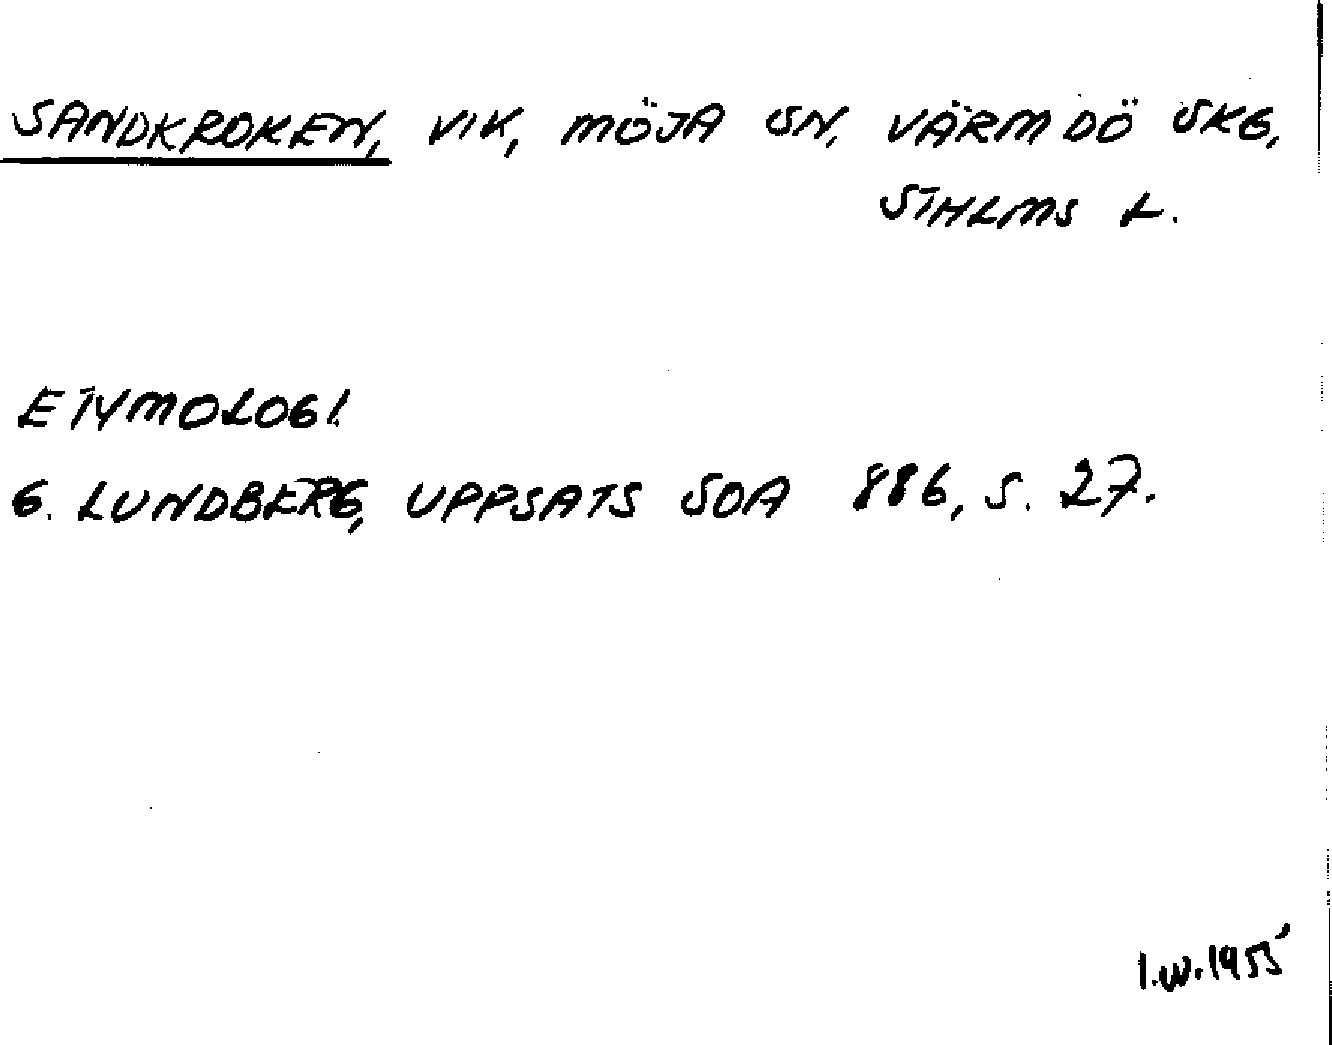 SANDKROKEN, VIK, MÖJA SN, VÄRMDÖ SKG,
STHLMS L.
ETYMOLOGI.
G. LUNDBERG, UPPSATS SOA 886, S. 27.
I.W. 1955